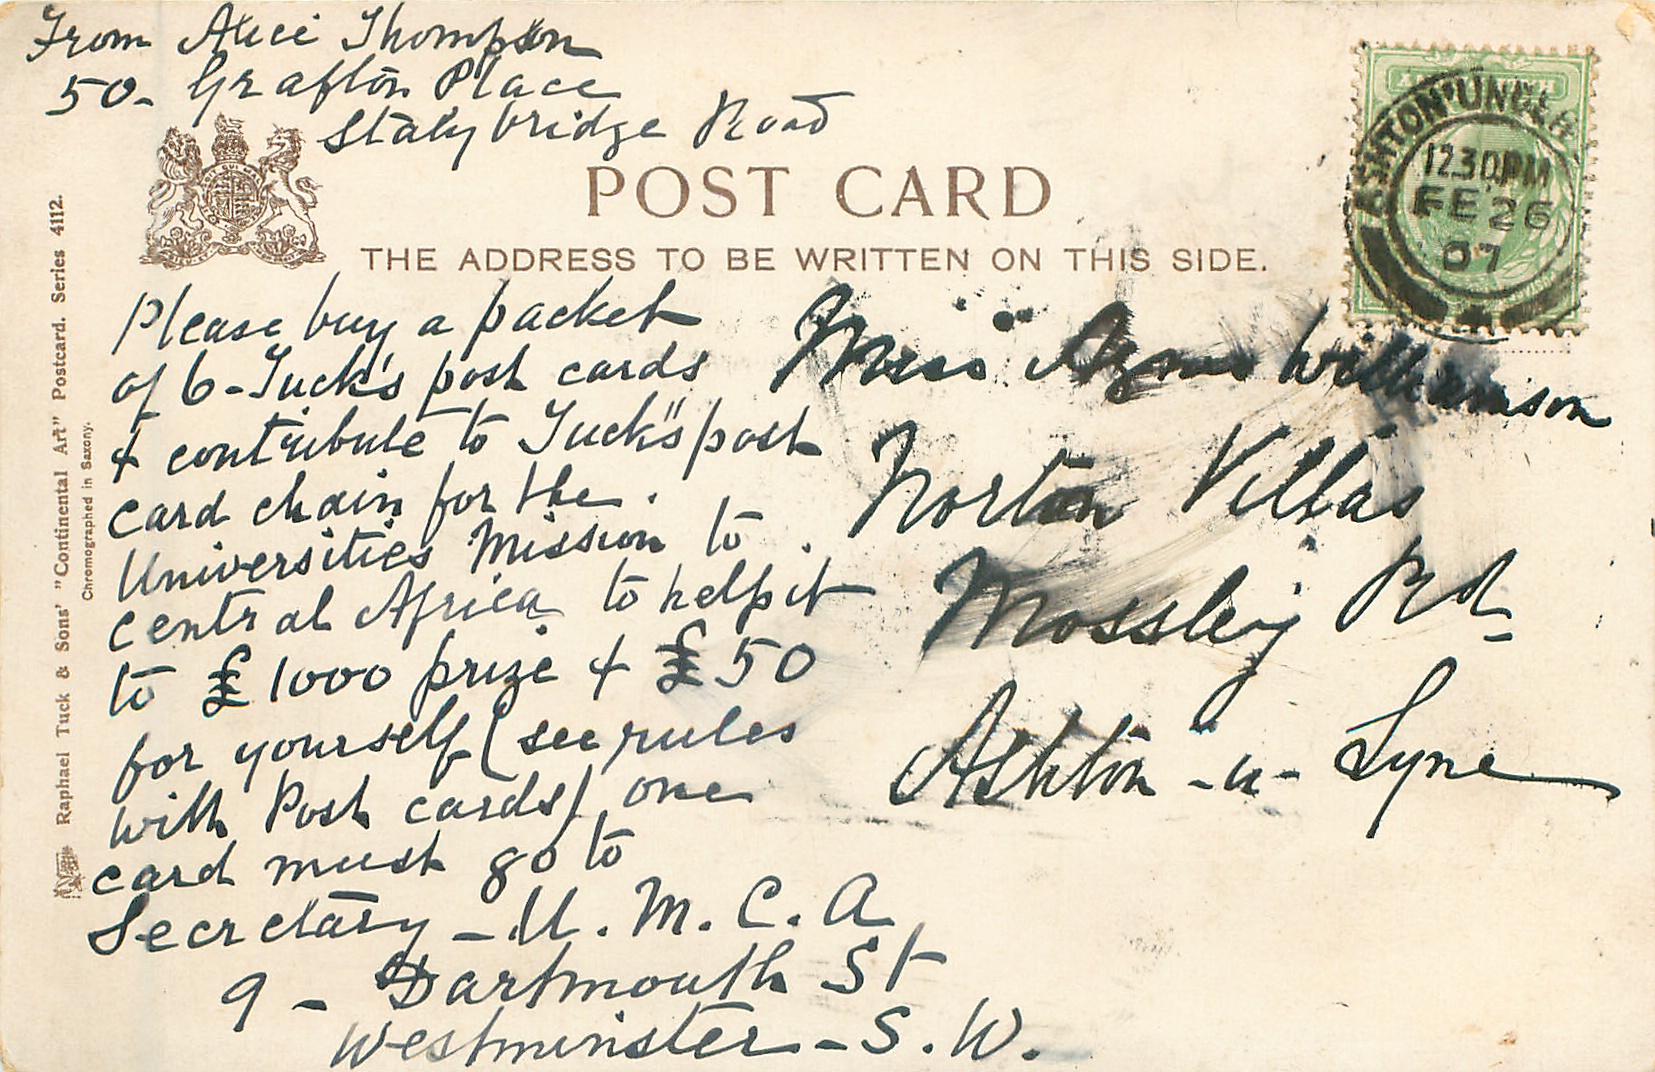 From Alice Thompson
50- Grafton Place
Stalybridge Road
POST CARD
THE ADDRESS TO BE WRITTEN ON THIS SIDE.
ASHTON UNDER
12.30PM
FE 26
07
Raphael Tuck & Sons' "Continental Art" Postcard. Series 4112.
Chromographed in Saxony.
Please buy a packet
of 6-Tuck's post cards
& contribute to Tuck's post
card chain for the
Universities Mission to
central Africa to help it
to £1000 prize & £50
for yourself (see rules
with Post cards) one
card must go to
Secretary - U.M.C.A
9 - Dartmouth St
Westminster - S.W.
Miss Agnes Williamson
Norton Villas
Mossley Rd
Ashton -u- Lyne